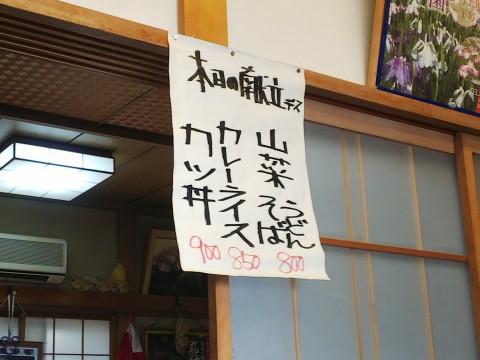 本日の献立デス
山菜 うどん
そば
800
カレーライス
850
カツ丼
900